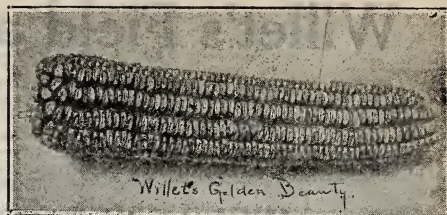 Willet's Golden Beauty.